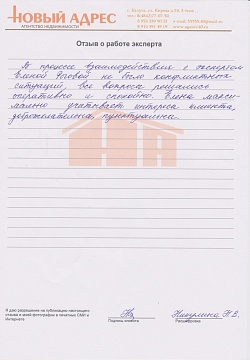 НОВЫЙ АДРЕС
АГЕНТСТВО НЕДВИЖИМОСТИ
г. Калуга, ул. Кирова
Отзыв о работе эксперта
В процессе взаимодействия с экспертом
Еленой Роговой не было конфликтных
ситуаций, все вопросы решались
оперативно и спокойно. Елена макси-
мально учитывает интересы клиента,
доброжелательна, пунктуальна.
Я даю разрешение на публикацию настоящего
отзыва и моей фотографии в печатных СМИ и
Интернете
Подпись клиента
Расшифровка